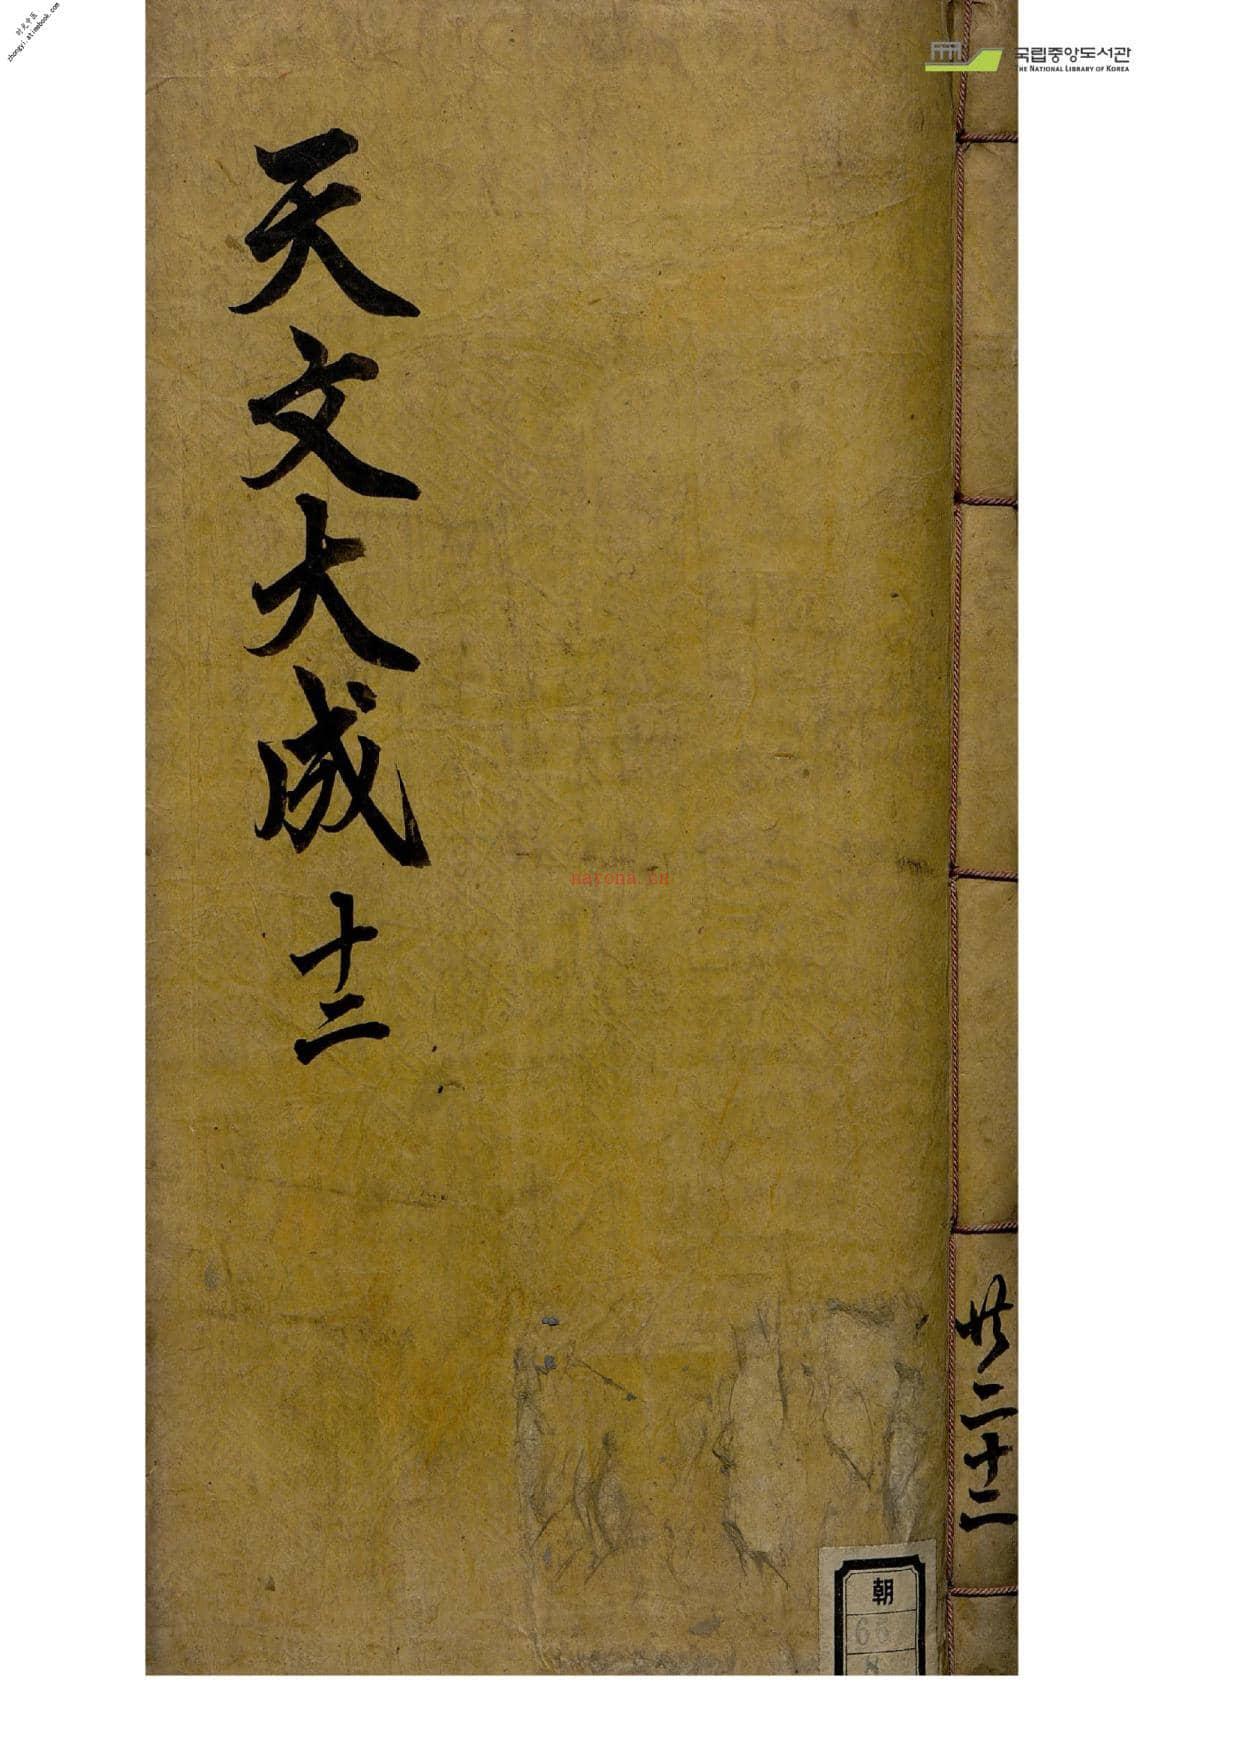 时光中医
zhongyi.atimebook.com
국립중앙도서관
THE NATIONAL LIBRARY OF KOREA
天文大成 十二
nayona.cn
共二十二
朝
66
8